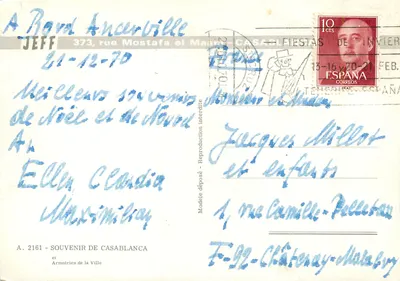 A Bord Ancerville
JEFF 373, rue Mostafa el Maani CASA
21-12-70
Meilleurs souvenirs
de Noël et de Nouvel
An
Ellen Claudia
Maximilian
A. 2161 - SOUVENIR DE CASABLANCA
et
Armoiries de la Ville
Modèle déposé - Reproduction interdite
FIESTAS DE INVIER
13-16
FEB.
TENERIFE ESPAÑA
10 cts
ESPAÑA
CORREOS
Monsieur et Madame
Jacques Millot
et enfants
1, rue Camille-Pelletan
F-92-Châtenay-Malabry